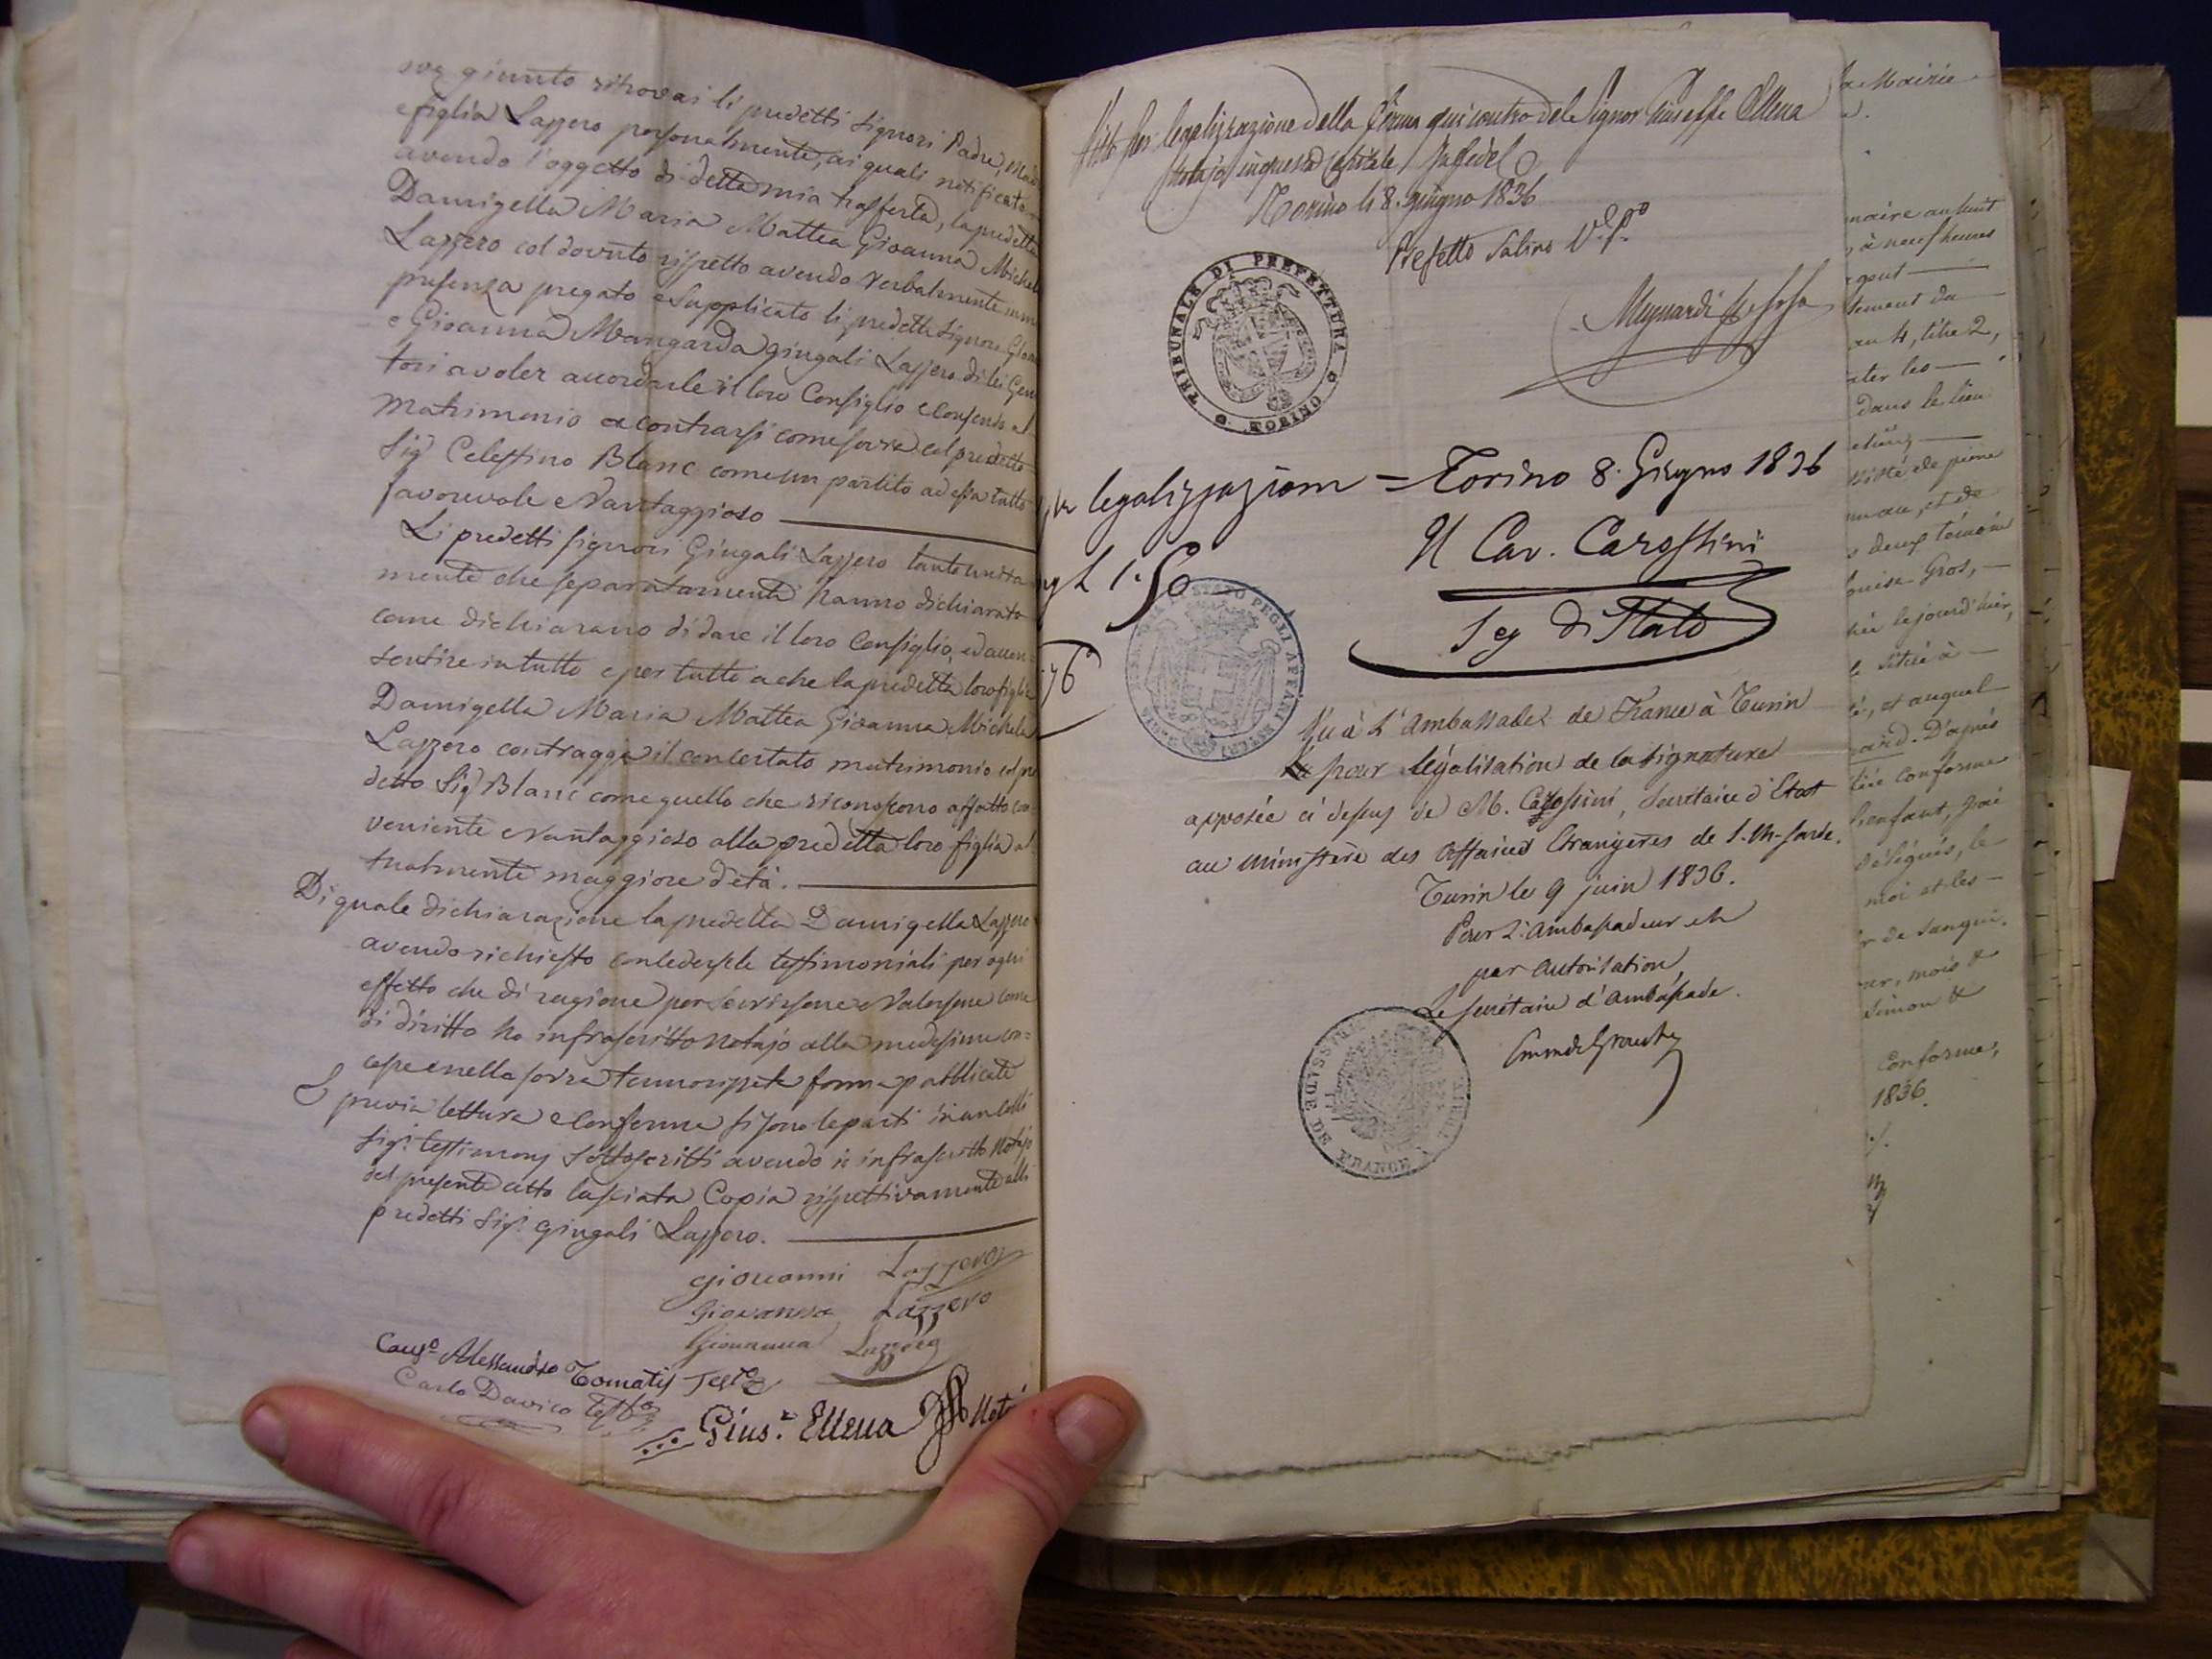 giunto ritrovai li predetti Signori Padre, Mad
e figlia Lazzero personalmente, ai quali notificato
avendo l'oggetto di detta mia trasferta, la predetta
Damigella Maria Mattea Gioanna Michel
Lazzero col dovuto rispetto avendo verbalmente in m
presenza pregato e supplicato li predetti Signori Gioa
e Gioanna Mangarda giugali Lazzero di lei Geni
tori a voler accordarle il loro Consiglio e Consenso al
Matrimonio a contrarsi come sovra col predetto
Sig.r Celestino Blanc come un partito ad essa tutto
favorevole e vantaggioso
Li predetti signori Giugali Lazzero tanto unita
mente che separatamente hanno dichiarato
come dichiarano di dare il loro Consiglio, ed accon
sentire in tutto e per tutto a che la predetta loro figlia
Damigella Maria Mattea Gioanna Michela
Lazzero contragga il concertato matrimonio col pre
detto Sig.r Blanc come quello che riconoscono affatto con
veniente e vantaggioso alla predetta loro figlia at
tualmente maggiore d'età.
Di quale dichiarazione la predetta Damigella Lazzero
avendo richiesto concedersele testimoniali per ogni
effetto che di ragione per servirsene e valersene come
di diritto ho infrascritto Notajo alla medesima con=
cesse nella forma pubblicate
E previa lettura e conferma si sono le parti in un colli
Sig.i testimonj sottoscritti avendo io infrascritto Notajo
del presente atto lasciata Copia rispettivamente alli
predetti Sig.i giugali Lazzero.
Giovanni Lazzero
Giovanna Lazzero
Giovanna Lazzero
Caus.o Alessandro Tomatis Test.
Carlo Davico Test.
Gius.e Ellena Not.
Visto per legalizzazione della firma qui contro del Signor Giuseppe Ellena
Notajo in questa Capitale
Torino li 8. giugno 1836
Prefetto Salino V. P.
TRIBUNALE DI PREFETTURA TORINO
Mugnardi
per legalizzazione = Torino 8. Giugno 1836
Il Cav. Carossini
1. 50
Seg di Stato
76
STATO PEGLI AFFARI ESTERI
Vu à L'ambassade de France à Turin
pour légalisation de la signature
apposée ci dessus de M. Carossini, Secrétaire d'Etat
au Ministère des Affaires Etrangères de S. M. Sarde.
Turin le 9 juin 1836.
Pour L'ambassadeur et
par autorisation
Le secrétaire d'ambassade.
AMBASSADE DE FRANCE À TURIN
la Mairie
maire au huit
à neuf heures
an 4, titre 2,
dans le lieu
deux témoins
ouise Gros,
le jour d'hier,
située à
et auquel
D'après
conforme
l'enfant, j'ai
le
moi et les
de sangui.
mois &
Simon &
Conforme,
1836.